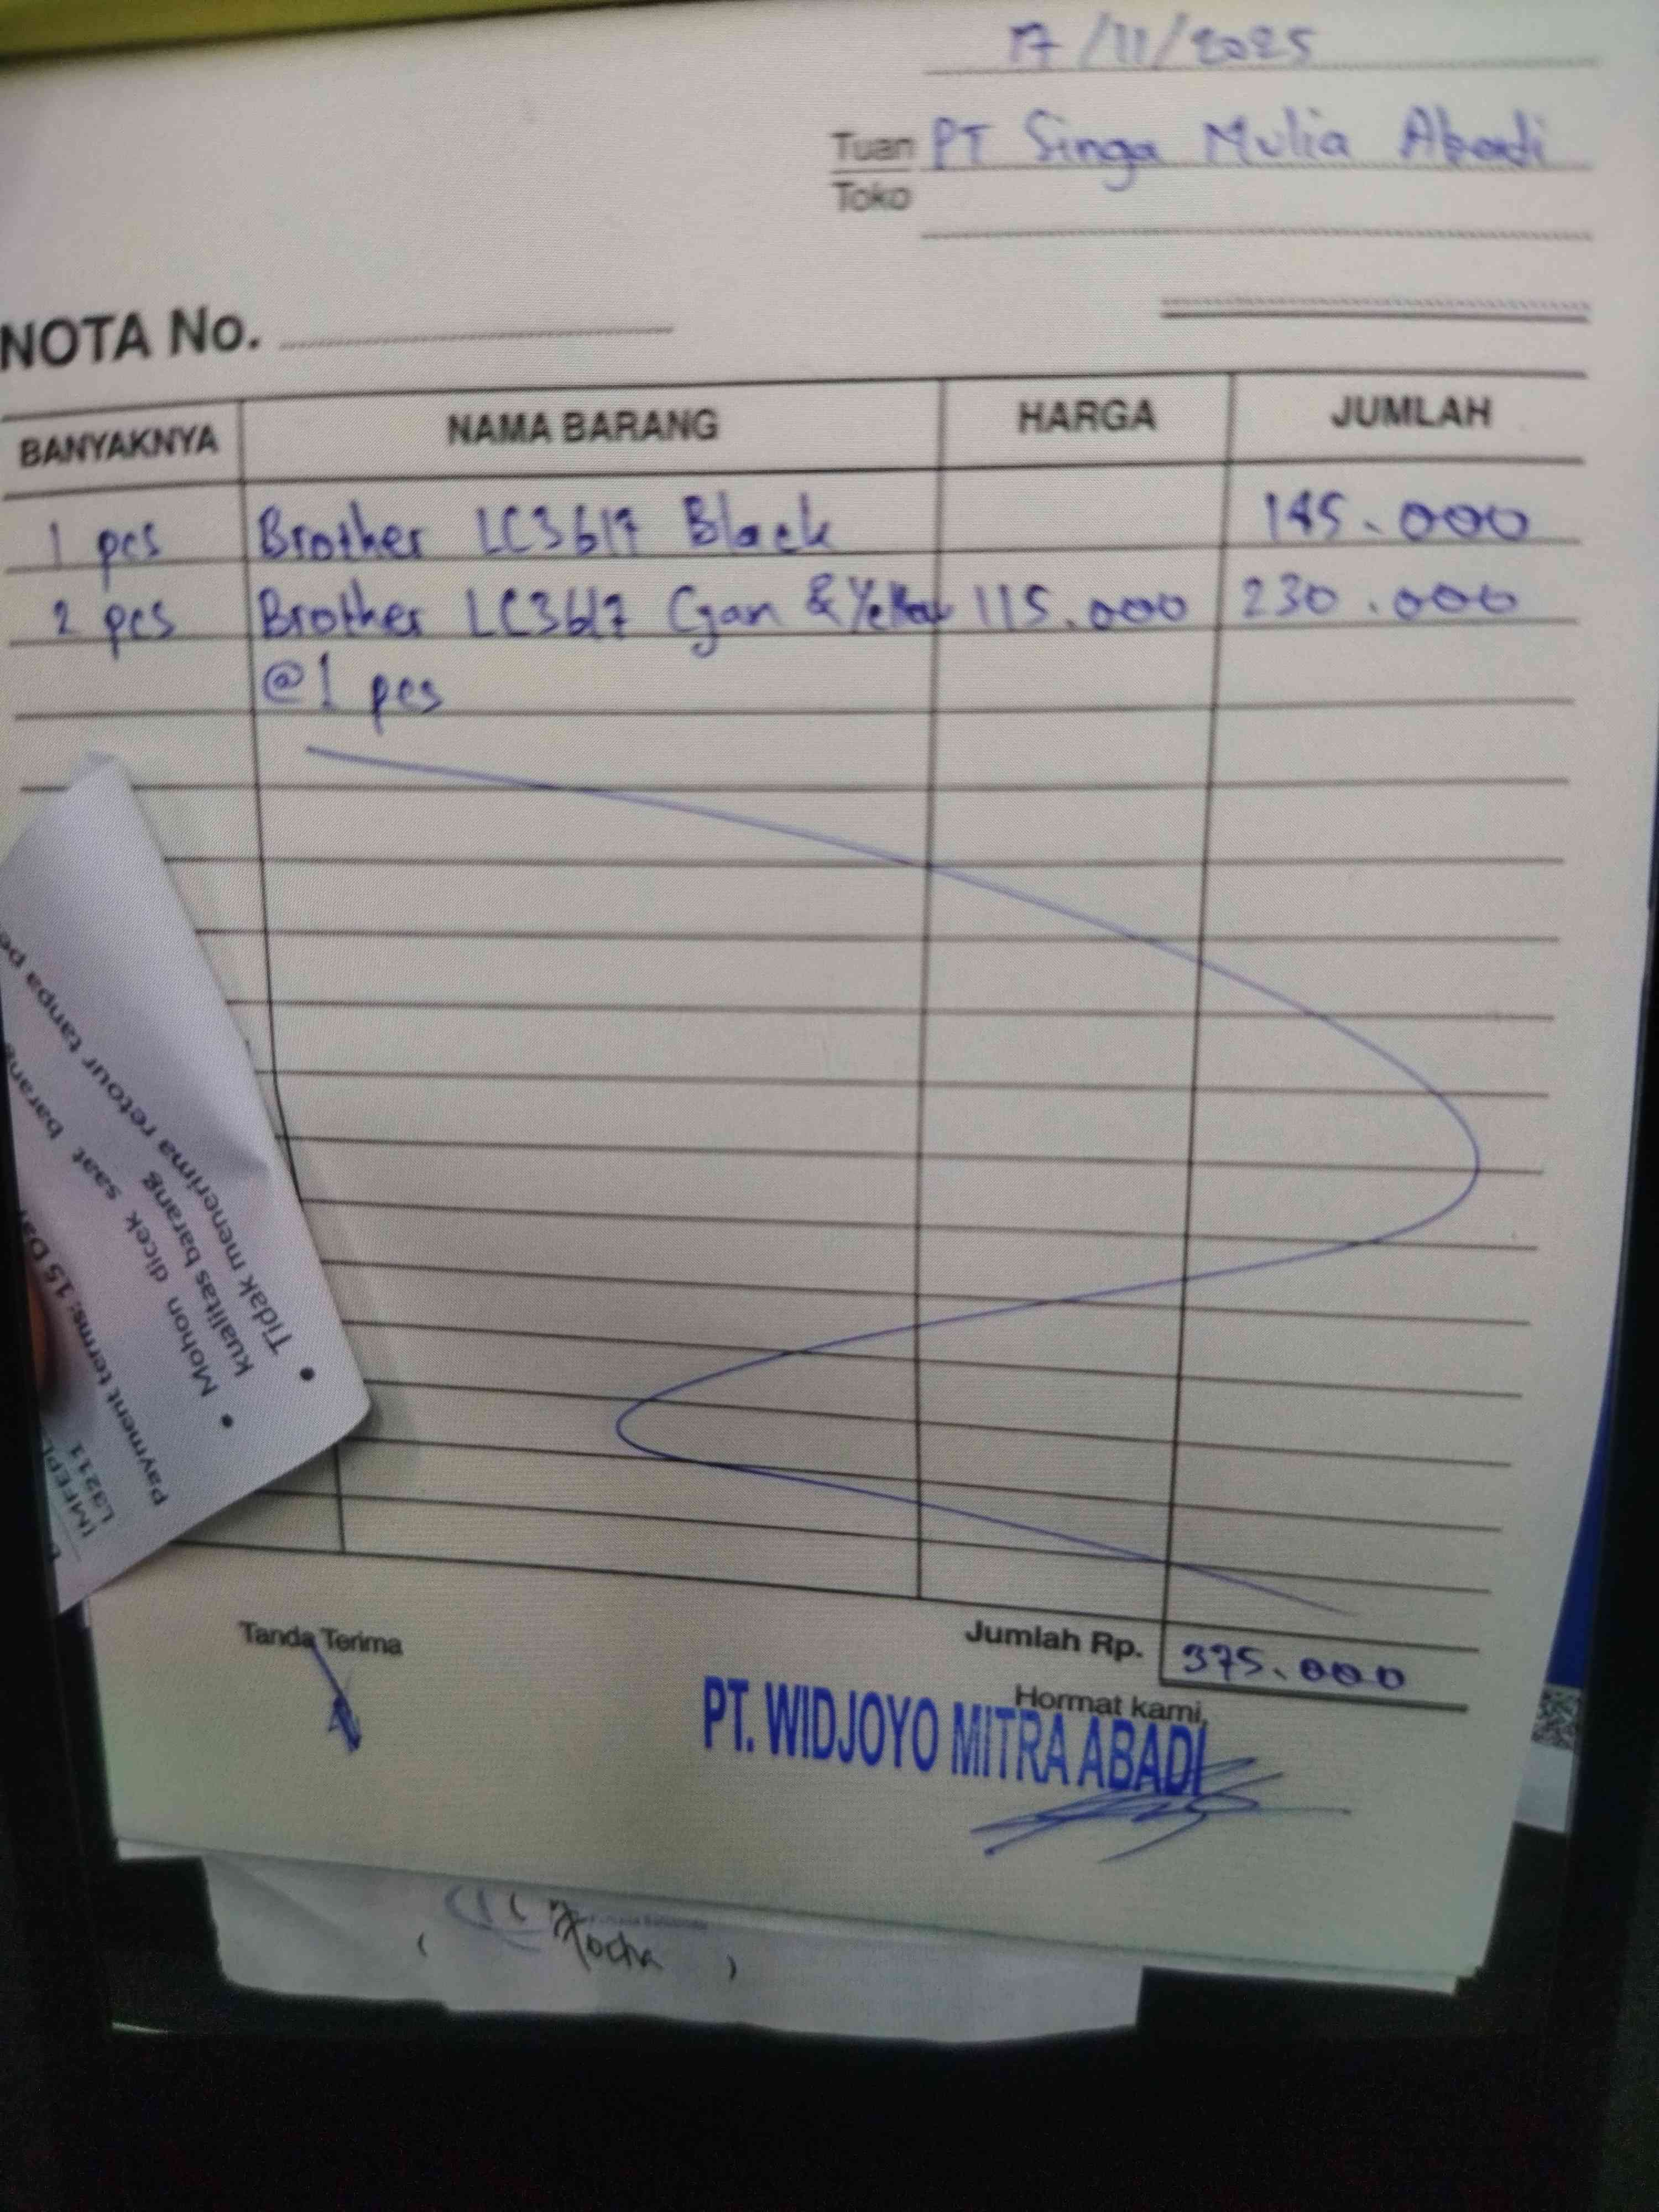 17/11/2025
Tuan PT Singa Mulia Abadi
Toko
NOTA No.
BANYAKNYA NAMA BARANG HARGA JUMLAH
1 pcs Brother LC3617 Black 145.000
2 pcs Brother LC3617 Cyan & Yellow 115.000 230.000
@1 pcs
Tidak menerima retour tanpa
kualitas barang
Mohon dicek saat barang
Payment terms: 15
L3211
Tanda Terima
Jumlah Rp. 375.000
Hormat kami,
PT. WIDJOYO MITRA ABADI